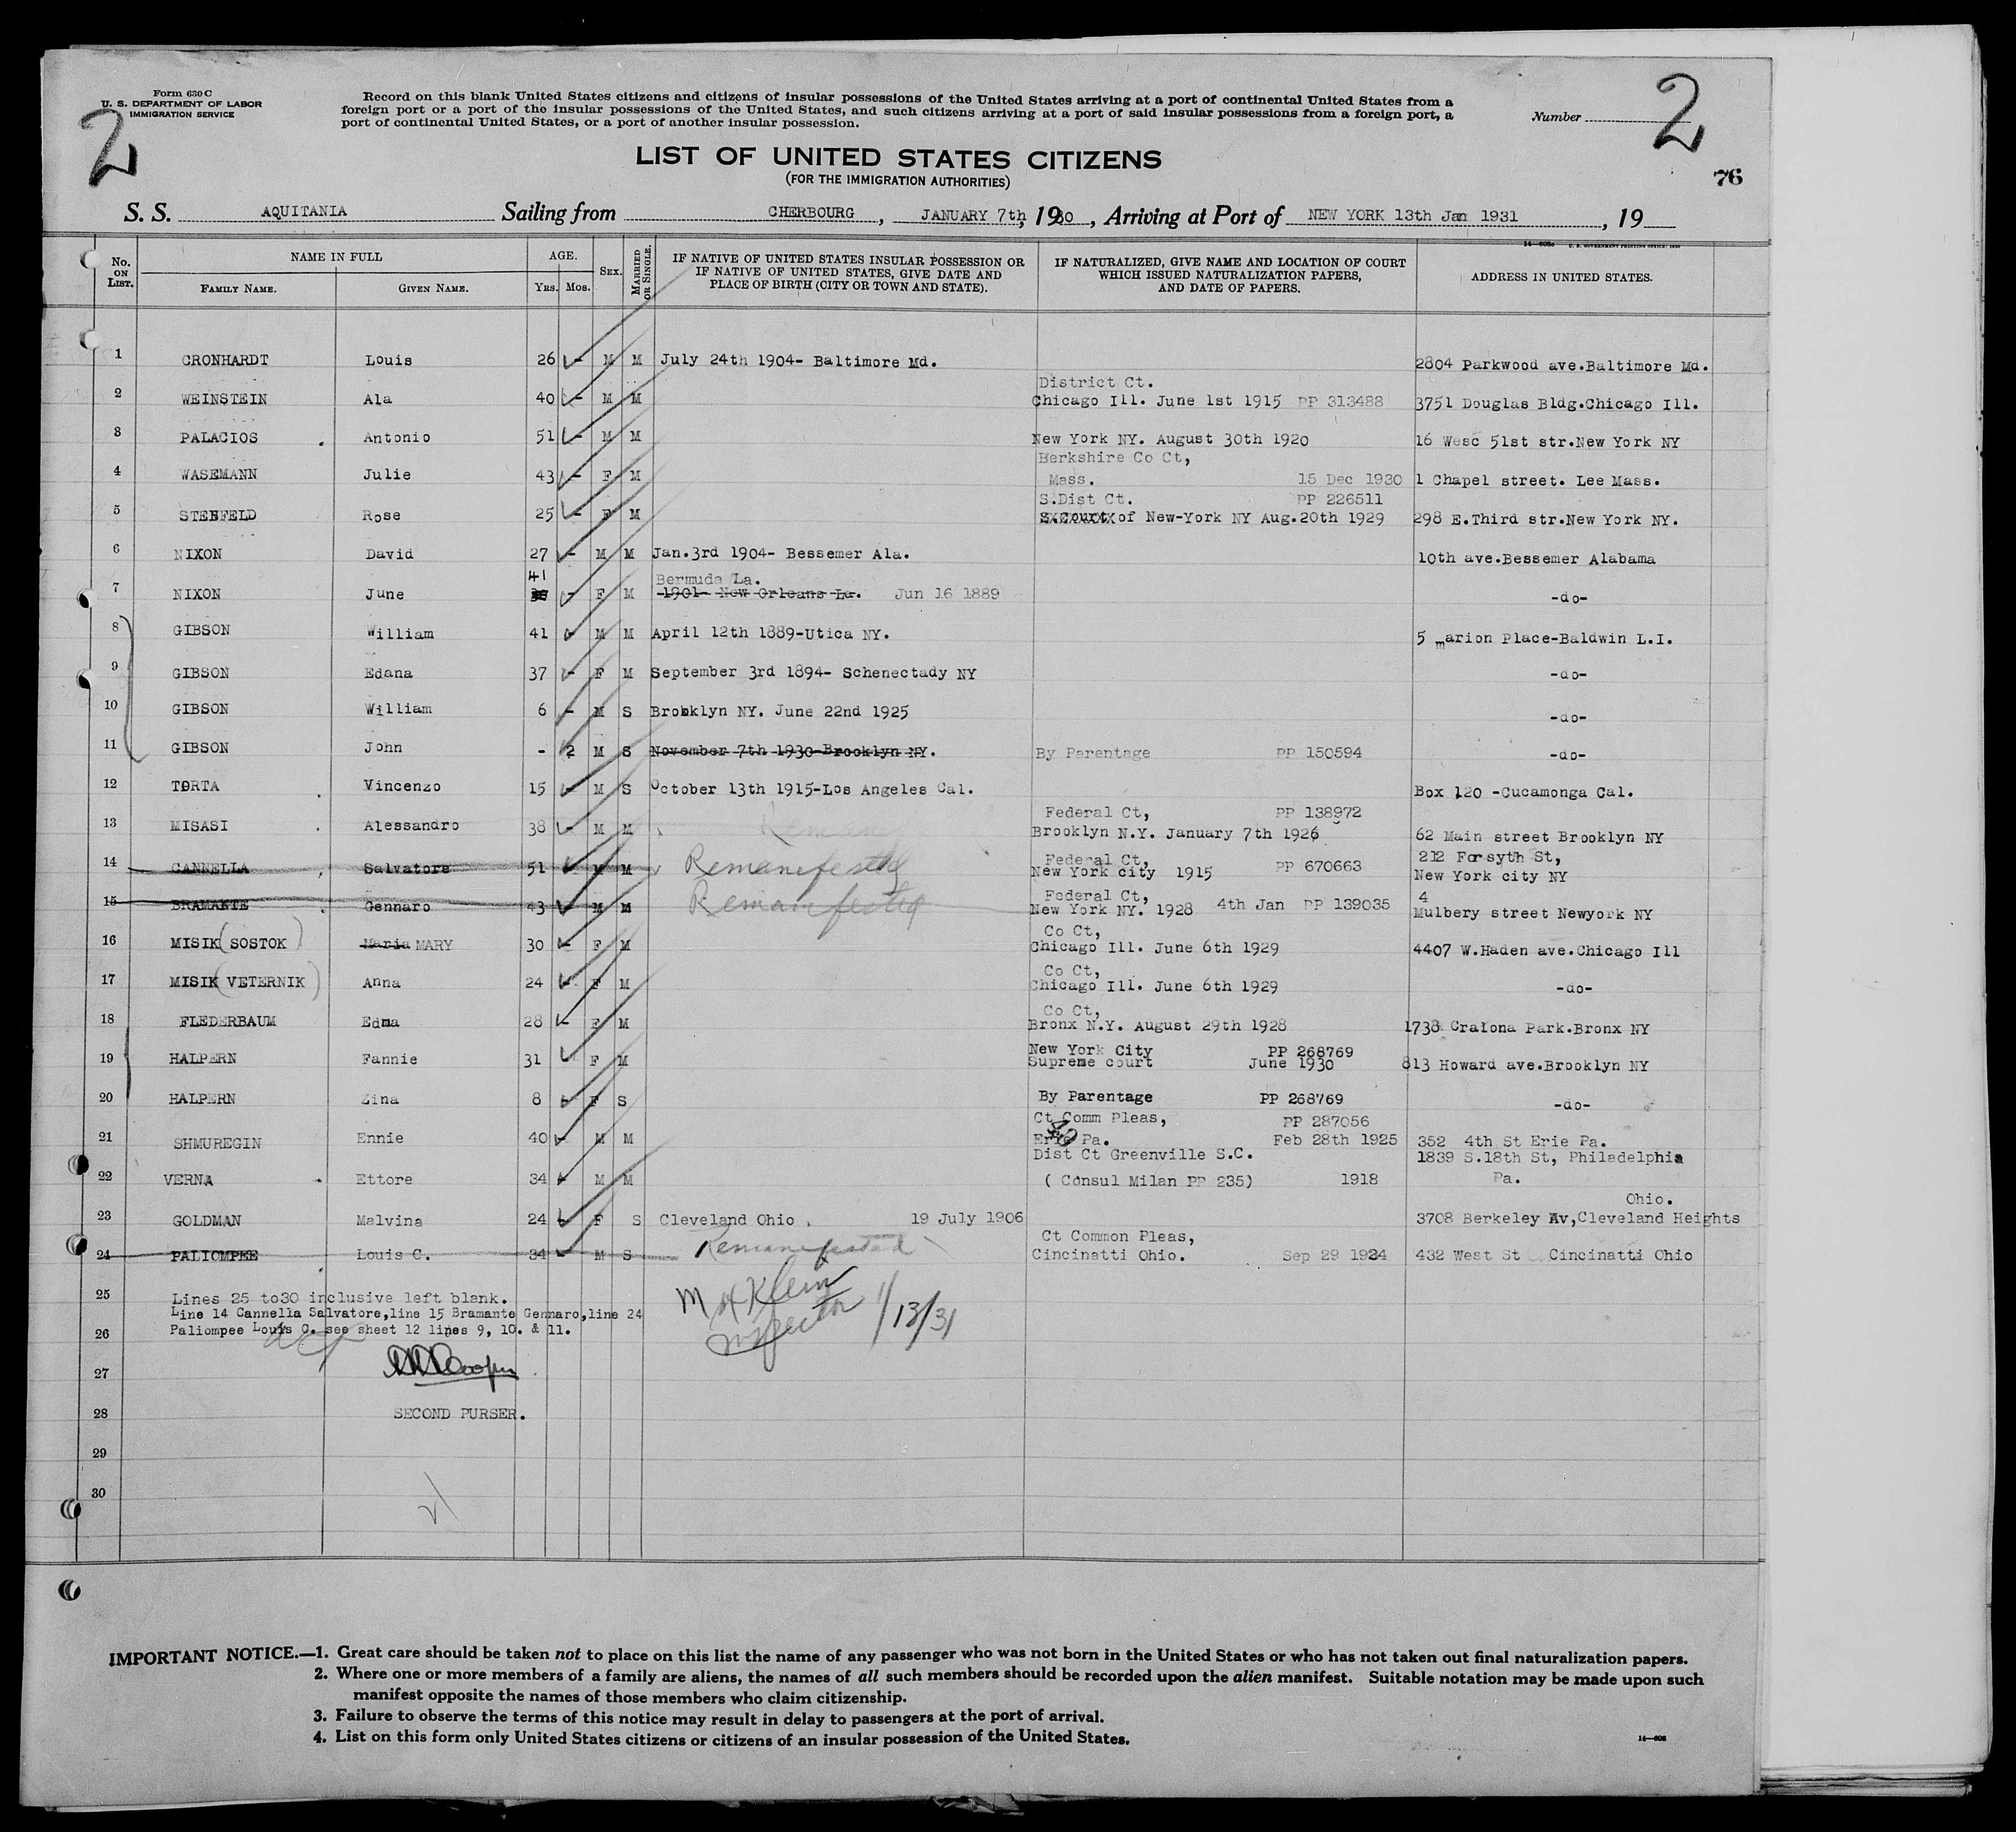 Form 630 C
U. S. DEPARTMENT OF LABOR
IMMIGRATION SERVICE
2
Record on this blank United States citizens and citizens of insular possessions of the United States arriving at a port of continental United States from a
foreign port or a port of the insular possessions of the United States, and such citizens arriving at a port of said insular possessions from a foreign port, a
port of continental United States, or a port of another insular possession.
Number
2
76
LIST OF UNITED STATES CITIZENS
(FOR THE IMMIGRATION AUTHORITIES)
S. S. AQUITANIA Sailing from CHERBOURG, JANUARY 7th, 1930, Arriving at Port of NEW YORK 13th Jan 1931, 19
No. ON LIST. NAME IN FULL FAMILY NAME. GIVEN NAME. AGE. YRS. MOS. SEX. MARRIED OR SINGLE. IF NATIVE OF UNITED STATES INSULAR POSSESSION OR IF NATIVE OF UNITED STATES, GIVE DATE AND PLACE OF BIRTH (CITY OR TOWN AND STATE). IF NATURALIZED, GIVE NAME AND LOCATION OF COURT WHICH ISSUED NATURALIZATION PAPERS, AND DATE OF PAPERS. ADDRESS IN UNITED STATES.
1 CRONHARDT Louis 26 - M M July 24th 1904- Baltimore Md. 2804 Parkwood ave.Baltimore Md.
District Ct.
2 WEINSTEIN Ala 40 - M M Chicago Ill. June 1st 1915 PP 313488 3751 Douglas Bldg.Chicago Ill.
3 PALACIOS Antonio 51 - M M New York NY. August 30th 1920 16 Wesc 51st str.New York NY
Berkshire Co Ct,
4 WASEMANN Julie 43 - F M Mass. 15 Dec 1930 1 Chapel street. Lee Mass.
S.Dist Ct. PP 226511
5 STENFELD Rose 25 - F M S.Court of New-York NY Aug.20th 1929 298 E.Third str.New York NY.
6 NIXON David 27 - M M Jan.3rd 1904- Bessemer Ala. 10th ave.Bessemer Alabama
41 Bermuda La.
7 NIXON June - F M 1901- New Orleans La. Jun 16 1889 -do-
8 GIBSON William 41 - M M April 12th 1889-Utica NY. 5 marion Place-Baldwin L.I.
9 GIBSON Edana 37 - F M September 3rd 1894- Schenectady NY -do-
10 GIBSON William 6 - M S Brooklyn NY. June 22nd 1925 -do-
11 GIBSON John - 2 M S November 7th 1930-Brooklyn NY. By Parentage PP 150594 -do-
12 TORTA Vincenzo 15 - M S October 13th 1915-Los Angeles Cal. Box 120 -Cucamonga Cal.
Federal Ct, PP 138972
13 MISASI Alessandro 38 - M M Brooklyn N.Y. January 7th 1926 62 Main street Brooklyn NY
Federal Ct, 212 Forsyth St,
14 CANNELLA Salvatore 51 M M Remanifested New York city 1915 PP 670663 New York city NY
Federal Ct, 4
15 BRAMANTE Gennaro 43 M M Remanifested New York NY. 1928 4th Jan PP 139035 Mulbery street Newyork NY
Co Ct,
16 MISIK (SOSTOK) Maria MARY 30 - F M Chicago Ill. June 6th 1929 4407 W.Haden ave.Chicago Ill
Co Ct,
17 MISIK (VETERNIK) Anna 24 - F M Chicago Ill. June 6th 1929 -do-
Co Ct,
18 FLEDERBAUM Edma 28 - F M Bronx N.Y. August 29th 1928 1738 Cratona Park.Bronx NY
New York City PP 268769
19 HALPERN Fannie 31 - F M Supreme court June 1930 813 Howard ave.Brooklyn NY
20 HALPERN Zina 8 - F S By Parentage PP 268769 -do-
Ct Comm Pleas, PP 287056
21 SHMUREGIN Ennie 40 - M M Erie Pa. Feb 28th 1925 352 4th St Erie Pa.
Dist Ct Greenville S.C. 1839 S.18th St, Philadelphia
22 VERNA Ettore 34 - M M ( Consul Milan PP 235) 1918 Pa.
Ohio.
23 GOLDMAN Malvina 24 - F S Cleveland Ohio. 19 July 1906 3708 Berkeley Av,Cleveland Heights
Remanifested Ct Common Pleas,
24 PALIOMPEE Louis C. 34 - M S Cincinatti Ohio. Sep 29 1924 432 West St Cincinatti Ohio
25 Lines 25 to30 inclusive left blank.
Line 14 Cannella Salvatore,line 15 Bramante Gennaro,line 24
26 Paliompee Louis C. see sheet 12 lines 9, 10. & 11.
M H Klein
Inspector 1/13/31
27
28 SECOND PURSER.
29
30
IMPORTANT NOTICE.—1. Great care should be taken not to place on this list the name of any passenger who was not born in the United States or who has not taken out final naturalization papers.
2. Where one or more members of a family are aliens, the names of all such members should be recorded upon the alien manifest. Suitable notation may be made upon such
manifest opposite the names of those members who claim citizenship.
3. Failure to observe the terms of this notice may result in delay to passengers at the port of arrival.
4. List on this form only United States citizens or citizens of an insular possession of the United States.